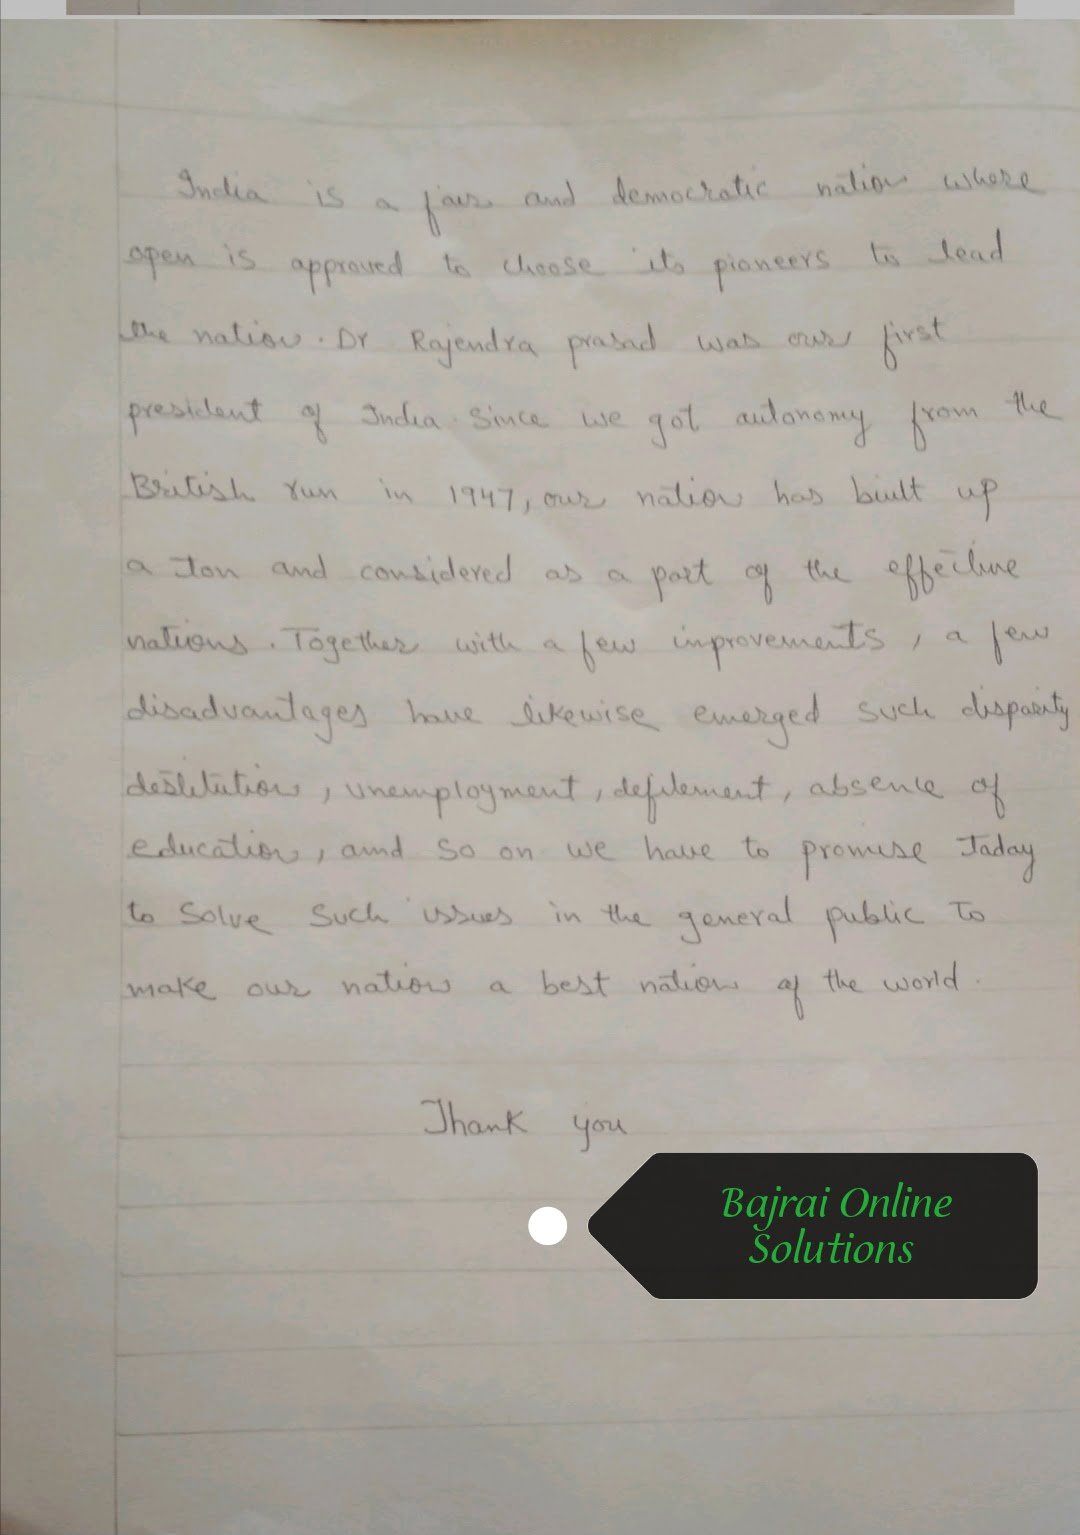 India is a fair and democratic nation where
open is approved to choose its pioneers to lead
the nation. Dr Rajendra prasad was our first
president of India. Since we got autonomy from the
British run in 1947, our nation has built up
a ton and considered as a part of the effective
nations. Together with a few improvements, a few
disadvantages have likewise emerged such disparity
destitution, unemployment, defilement, absence of
education, and so on we have to promise Today
to solve such issues in the general public To
make our nation a best nation of the world.
Thank you
Bajrai Online
Solutions